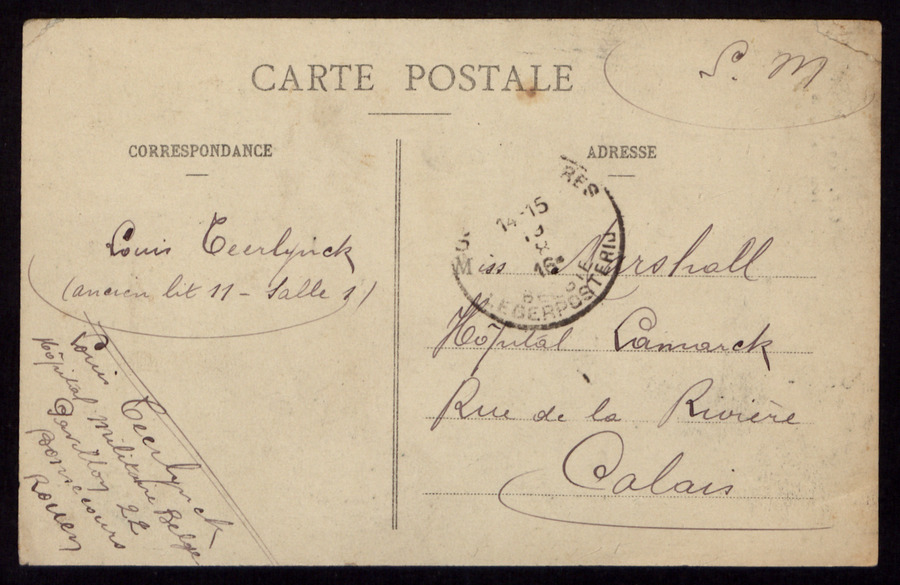 CARTE POSTALE
S. M
CORRESPONDANCE
Louis Teerlynck
(ancien lit 11 - Salle 1)
Louis Teerlynck
Hôpital Militaire Belge
Pavillon 22
Bonsecours
Rouen
ADRESSE
14-15
16
LEGERPOSTERIJ
Miss Marshall
Hôpital Lamarck
Rue de la Rivière
Calais